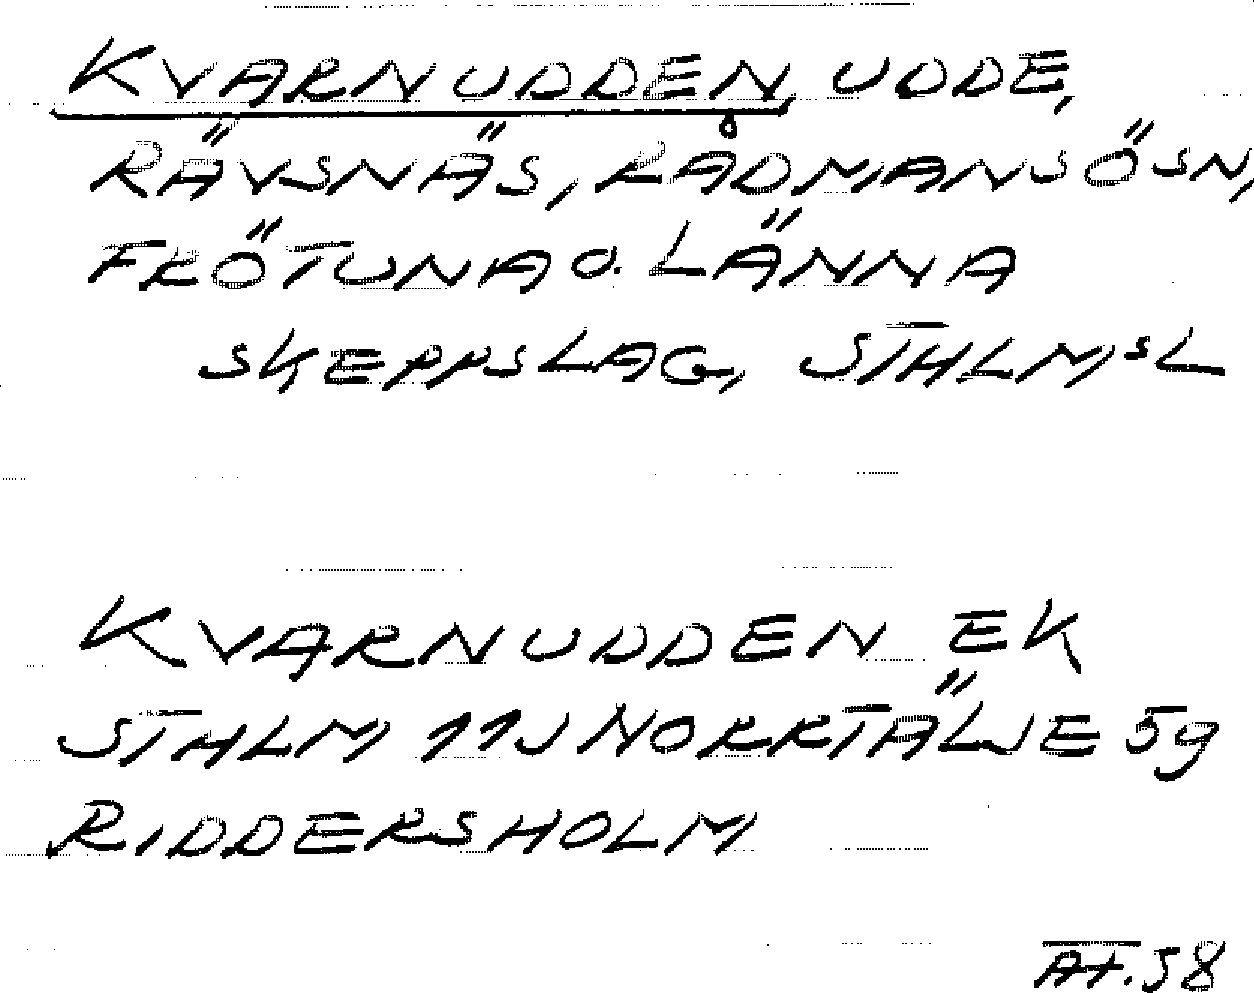 KVARNUDDEN, UDDE,
RÄVSNÄS, RÅDMANSÖSN,
FRÖTUNA O. LÄNNA
SKEPPSLAG, STHLMSL
KVARNUDDEN EK
STHLM 11J NORRTÄLJE 59
RIDDERSHOLM
AT. 58